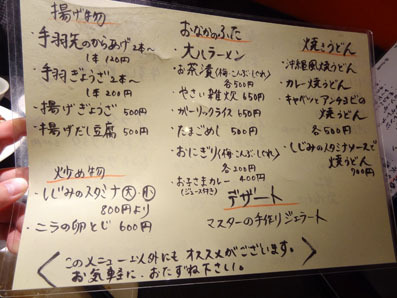 揚げ物
・手羽先のからあげ2本〜
1本 120円
・手羽ぎょうざ2本〜
1本 200円
・揚げぎょうざ 500円
・揚げだし豆腐 500円
炒め物
・しじみのスタミナ 大 小
800円より
・ニラの卵とじ 600円
おなかのふた
・大八ラーメン
・お茶漬(梅・こんぶ・しぐれ)
各500円
・やさい雑炊 650円
・ガーリックライス 650円
・たまごめし 500円
・おにぎり(梅・こんぶ・しぐれ)
各200円
・お子さまカレー 400円
(ジュース付き)
焼きうどん
・沖縄風焼うどん
・カレー焼うどん
・キャベツとアンチョビの
焼うどん
各500円
・しじみのスタミナソースで
焼うどん
900円
デザート
マスターの手作りジェラート
このメニュー以外にもオススメがございます。
お気軽に、おたずね下さい。